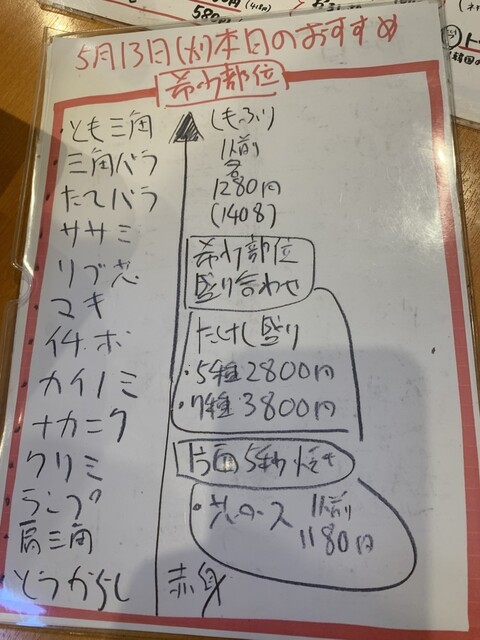 580円
5月13日(火)本日のおすすめ
希少部位
とも三角
三角バラ
たてバラ
ササミ
リブ芯
マキ
イチボ
カイノミ
ナカニク
クリミ
ランプ
肩三角
とうがらし
(もふり)
1人前
各
1280円
(1408)
希少部位
盛り合わせ
たけし盛り
・5種2800円
・7種3800円
片面5秒焼き
・芯ロース 1人前
1180円
赤身